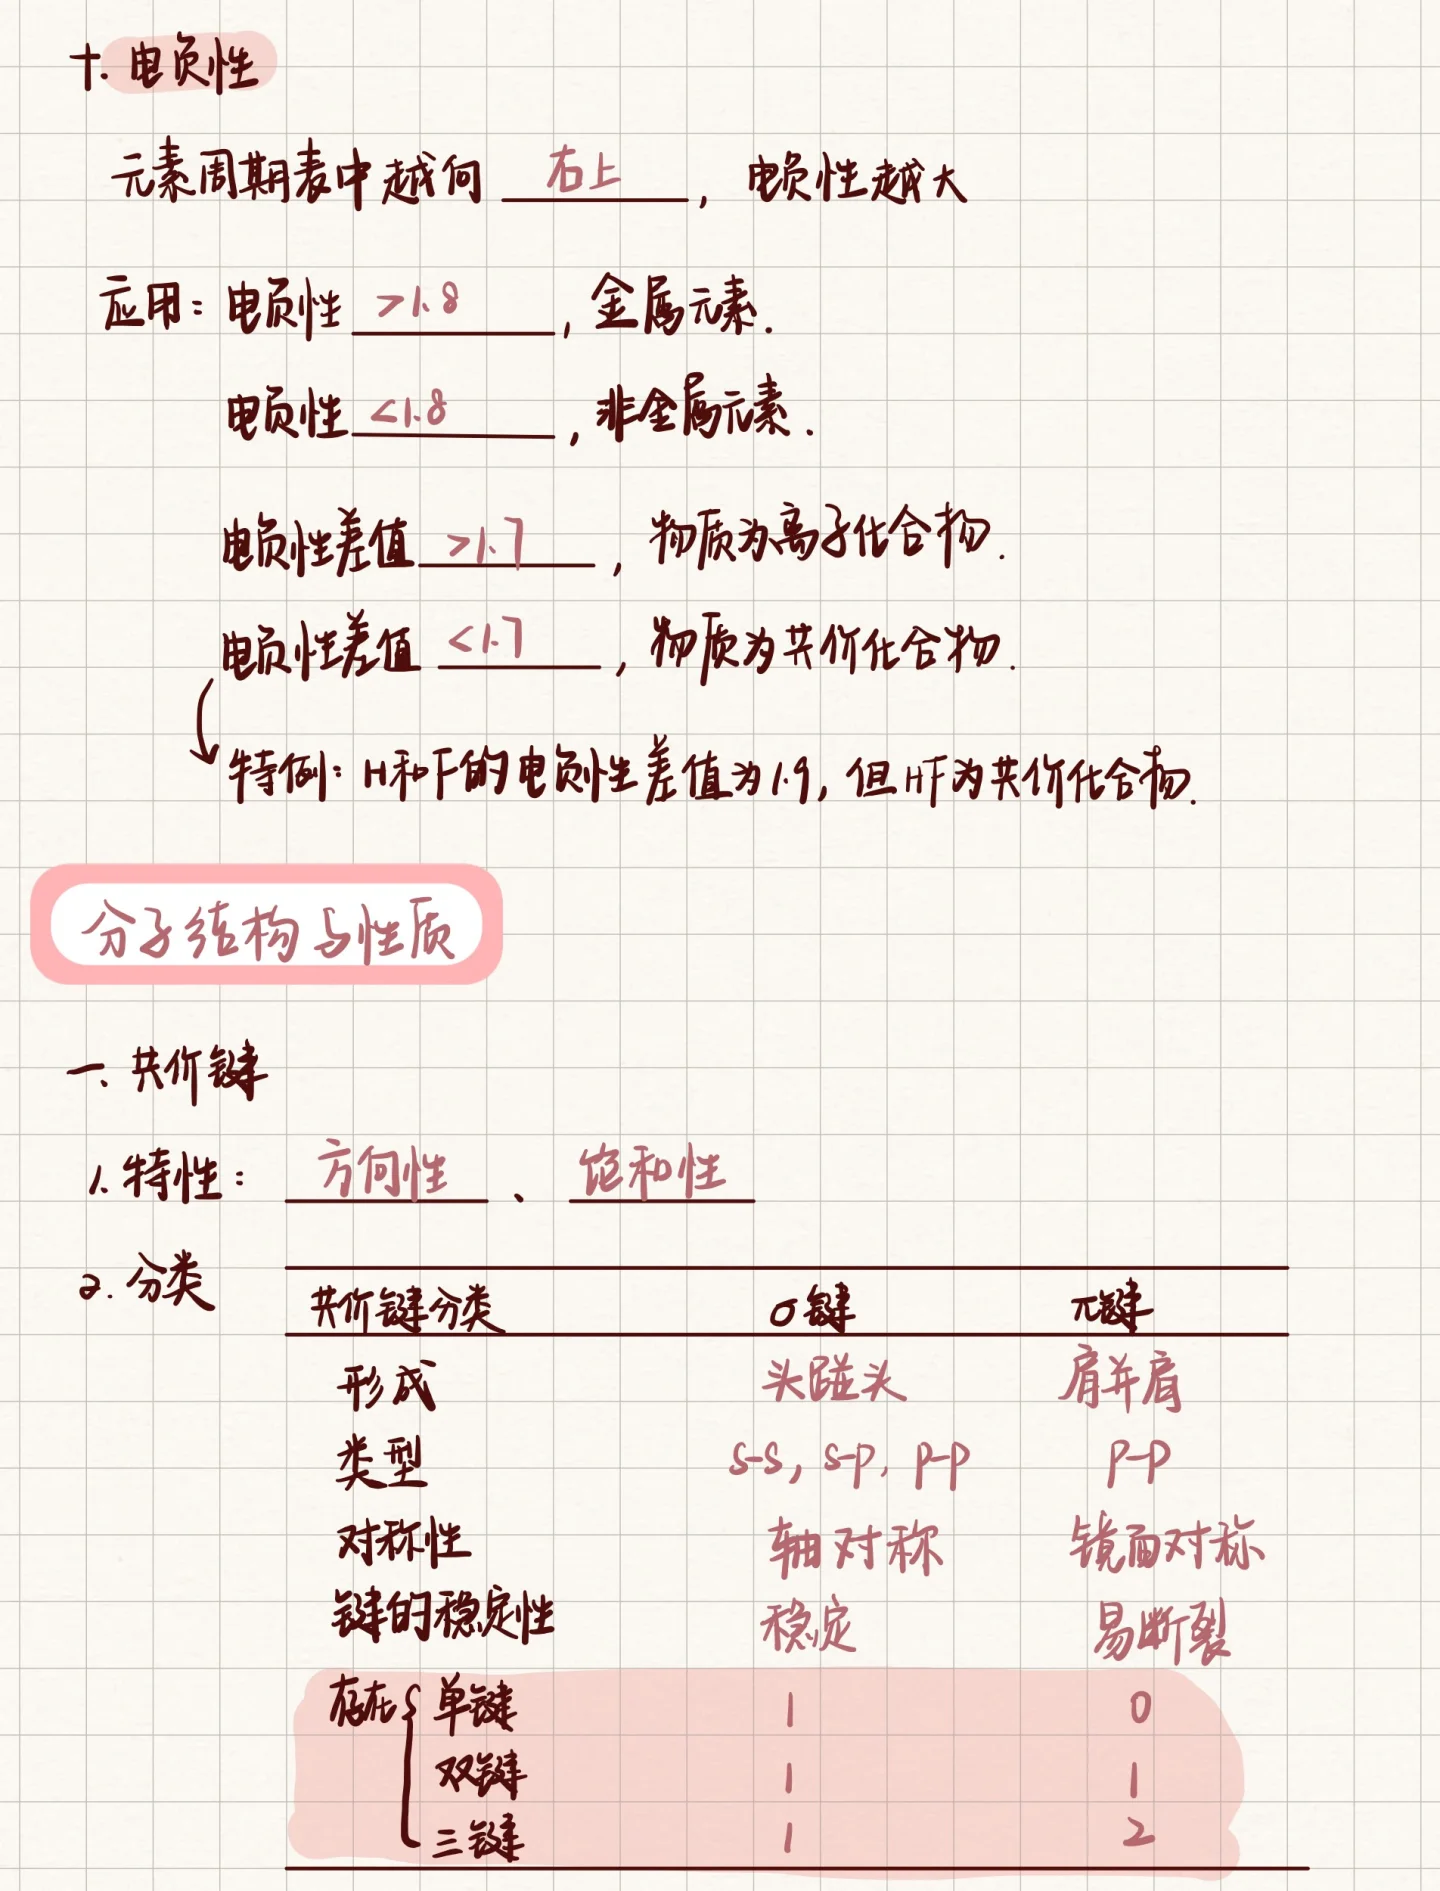 十. 电负性
元素周期表中越向 右上, 电负性越大
应用: 电负性 >1.8, 金属元素.
电负性 <1.8, 非金属元素.
电负性差值 >1.7, 物质为离子化合物.
电负性差值 <1.7, 物质为共价化合物.
特例: H和F的电负性差值为1.9, 但HF为共价化合物.
分子结构与性质
一. 共价键
1. 特性: 方向性、饱和性
2. 分类
共价键分类 σ键 π键
形成 头碰头 肩并肩
类型 s-s, s-p, p-p p-p
对称性 轴对称 镜面对称
键的稳定性 稳定 易断裂
存在{ 单键 1 0
双键 1 1
三键 1 2